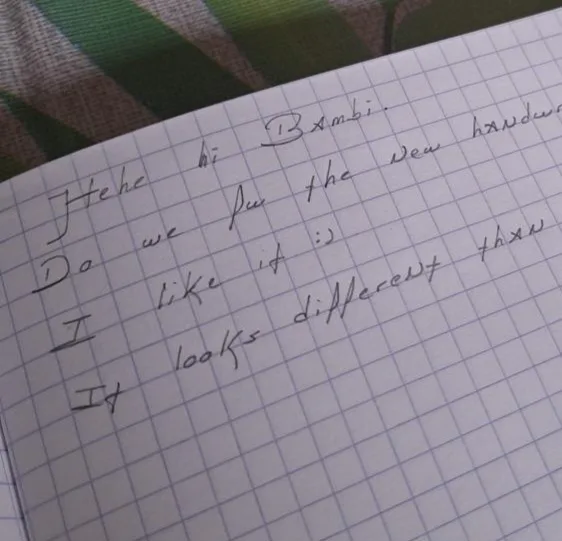 Hehe hi Bambi.
Do we fw the new
I like it :)
It looks different than